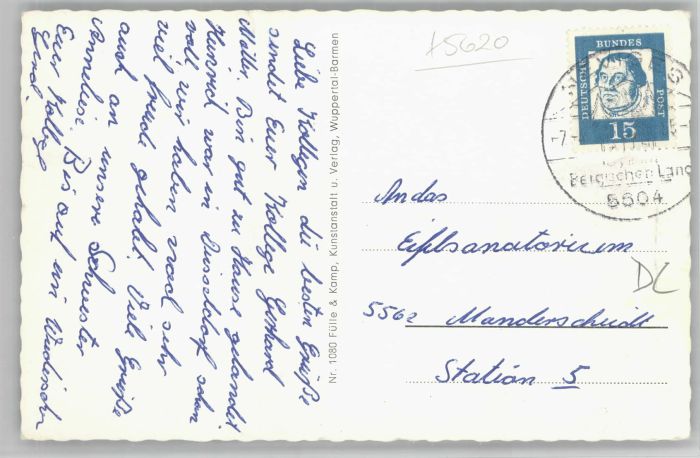 Liebe Kollegen die besten Grüße
sindet Euer Kollege Gerhard
Müller. Bin gut zu Hause gelandet
war in Düsseldorf schon
voll, wir haben noch sehr
viel freude gehabt. Viele Grüße
auch an unsere Schwester
Annelise. Bis auf ein Wiedersehn
Euer Kollege
Gerd.
Nr. 1080 Fülle & Kamp, Kunstanstalt u. Verlag, Wuppertal-Barmen
15620
DEUTSCHE BUNDES POST
15
-7.
Bergischen Land
5604
An das
Eifelsanatorium
5562 Manderscheidt
Station 5
DL